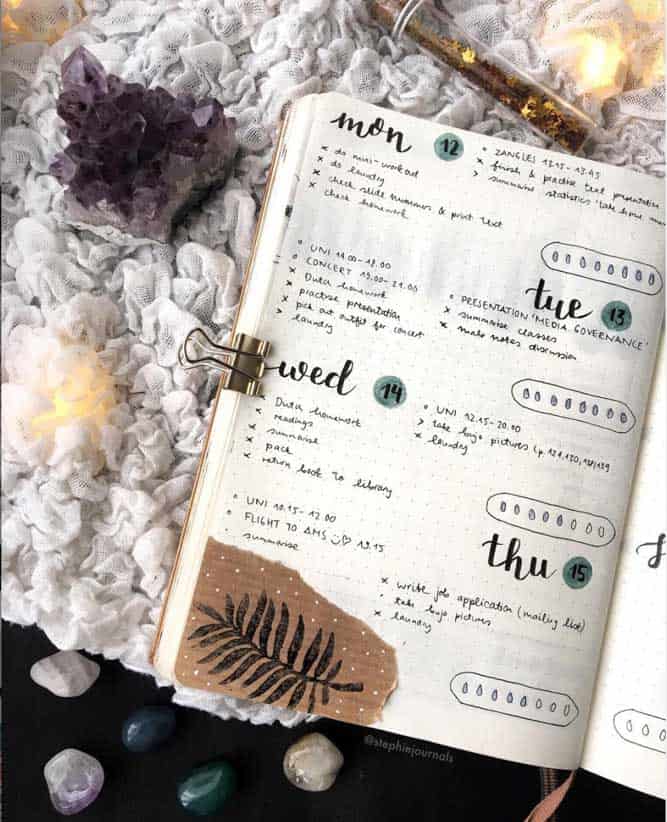 mon 12
x do mini-workout
x do laundry
x check slide summaries & print text
x check homework
o ZANGLES 13.15-13.45
x finish & practise text presentation
> summarise statistics 'take home
o UNI 14.00-18.00
o CONCERT 19.00-21.00
x Dutch homework
x practise presentation
x pick out outfit for concert
> laundry
tue 13
o PRESENTATION 'MEDIA GOVERNANCE'
x summarise classes
x make notes discussion
wed 14
x Dutch homework
x readings
x summarise
x pack
x return book to library
o UNI 12.15-20.00
> take bujo pictures (p. 129,130,
x laundry
thu 15
o UNI 10.15-12.00
o FLIGHT TO AMS 19.15
• summarise
x write job application (mailing list)
• take bujo pictures
x laundry
@stephinjournals